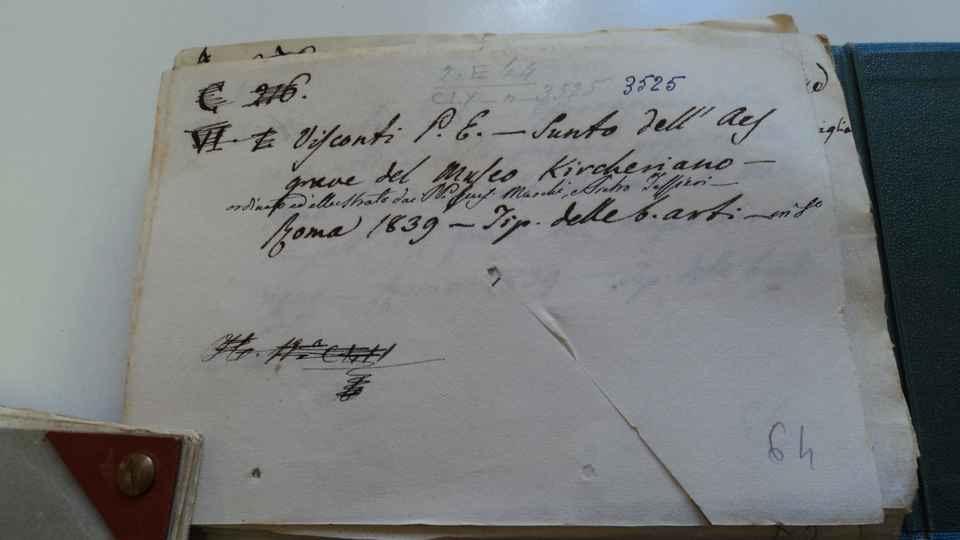 2. E 44
C 216. 3525 3525
VI. E Visconti P. E. — Sunto dell' Aes
grave del Museo Kircheriano —
ordinato ed illustrato dai PP. Marchi, e Tessieri —
Roma 1839 — Tip. delle b. arti — in 8°
64